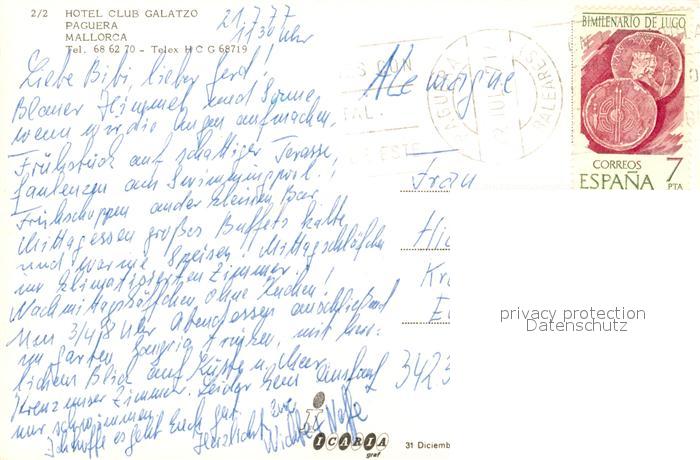 2/2 HOTEL CLUB GALATZO
PAGUERA
MALLORCA
Tel. 68 62 70 - Telex H C G 68719
21.7.77
11.30 Uhr
Liebe Bibi, lieber Gerd!
Blauer Himmel und Sonne,
wenn wir die Augen aufmachen,
Frühstück auf schattiger Terasse,
faulenzen am Swimmingpool!
Frühschoppen an der kleinen Bar
Mittagessen großes Buffets kalte
und warme Speisen! Mittagschläfchen
im klimatisierten Zimmer!
Nachmittagskäffchen ohne Kuchen!
Um 3/4 8 Uhr Abendessen anschließend
im Garten Sangria trinken, mit herr-
lichem Blick auf Küste u. Meer.
unser Zimmer. Leider kein
nur schwimmen.
Ich hoffe es geht Euch gut.
Herzlichst
Alemagne
Frau
Hi
Kr
E
3423
BIMILENARIO DE LUGO
CORREOS
ESPAÑA 7
PTA
PAGUERA
BALEARES
privacy protection
Datenschutz
ICARIA
graf
31 Diciemb